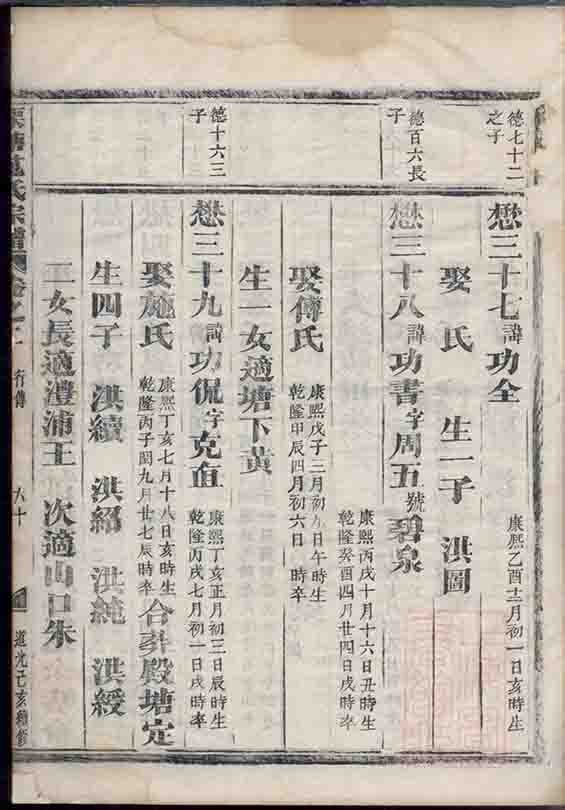 德七十二
之子
懋三十七諱功全
康熙乙酉十二月初一日亥時生
娶 氏 生一子 洪圖
德百六長
子
懋三十八諱功書字周五號碧泉
康熙丙戌十月十六日丑時生
乾隆癸酉四月廿四日戌時卒
娶傅氏
康熙戊子二月初 日午時生
乾隆甲辰四月初六日 時卒
生一女適塘下黃
德十六三
子
懋三十九諱功侃字克直
康熙丁亥正月初三日辰時生
乾隆丙戌七月初一日戌時卒
娶施氏
康熙丁亥七月十八日亥時生
乾隆丙子閏九月廿七辰時卒
合葬殿塘定
生四子 洪續 洪紹 洪純 洪綬
二女長適澧浦王 次適山口朱
氏宗譜 卷之二 行傳 六十 道光己亥重修